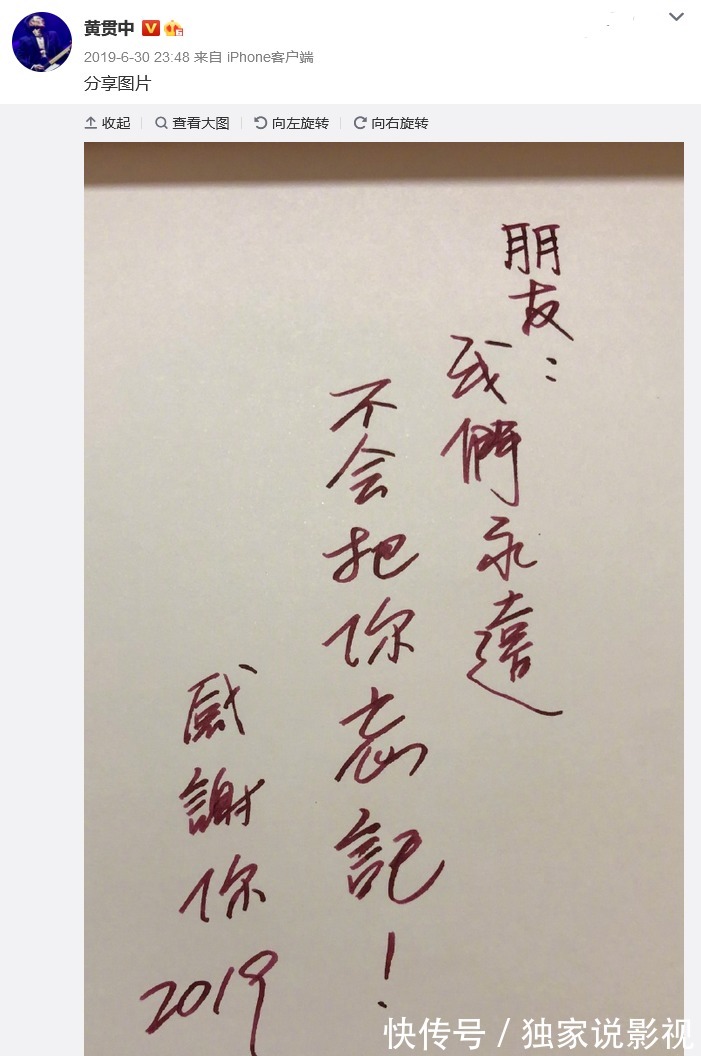 黄贯中
2019-6-30 23:48 来自 iPhone客户端
分享图片
收起 查看大图 向左旋转 向右旋转
朋友：
我們永遠
不会把你忘記！
感謝你
2019
快传号 / 独家说影视